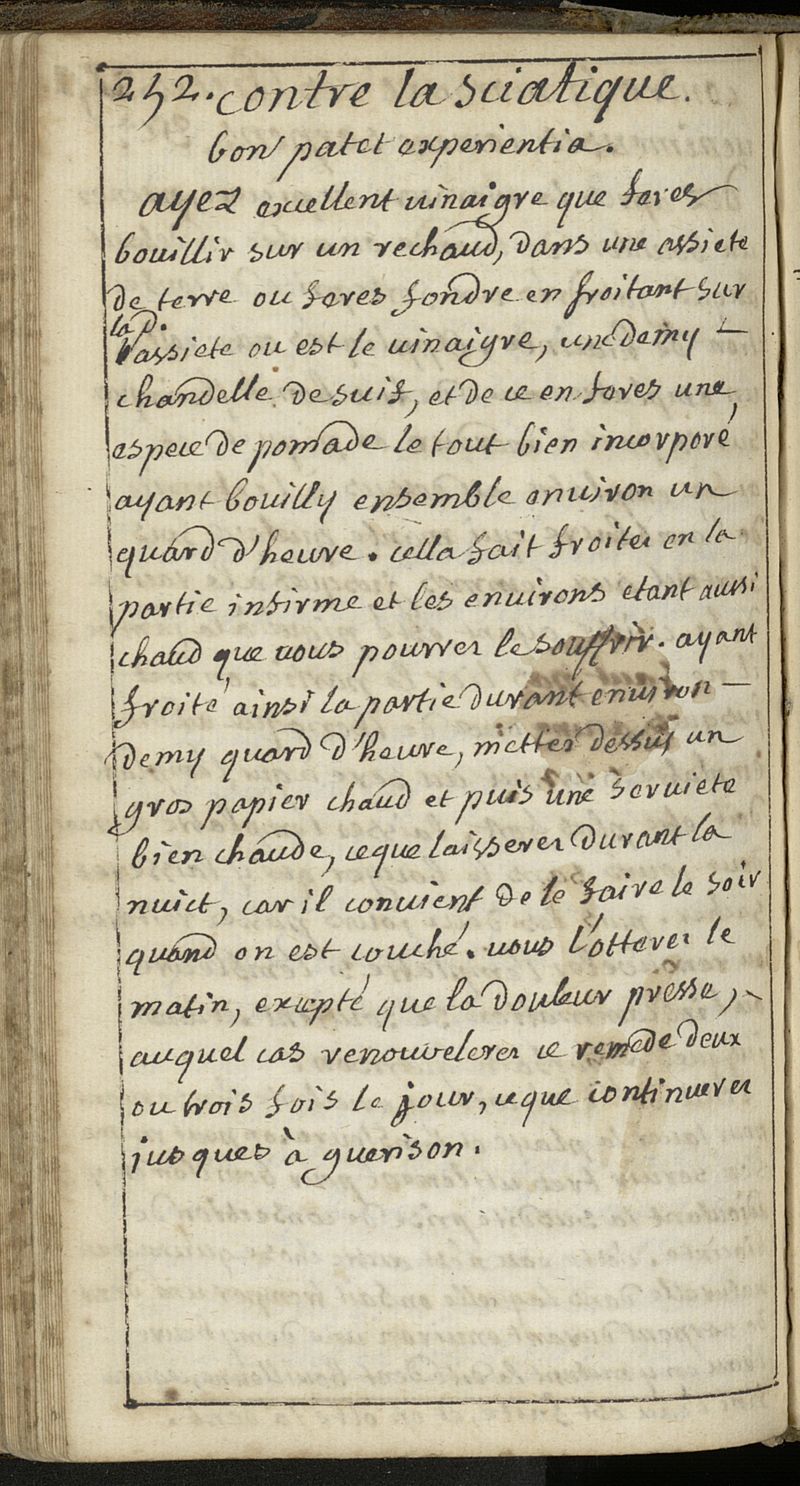 252. contre la sciatique.
bon patet experientia.
ayez excellent vinaigre que feres
bouillir sur un rechaud, dans une assiete
de terre ou feres fondre en froitant sur
la d.
l'assiete ou est le vinaigre, une demy –
chandelle de suif, et de ce en feres une
espece de pomade le tout bien incorporé
ayant bouilly ensemble environ un
quard d'heure. cella fait froites en la
partie infirme et les environs etant aussi
chaud que vous pourres le souffrir. ayant
froité ainsi la partie durant environ –
demy quard d'heure, mettes dessus un
gros papier chaud et puis une serviete
bien chaude, ce que laisseres durant la
nuict, car il convient de le faire le soir
quand on est couché. vous l'otteres le
matin, excepté que la douleur presse,
auquel cas renouveleres ce remede deux
ou trois fois le jour, ce que continueres
jusques à guerison.